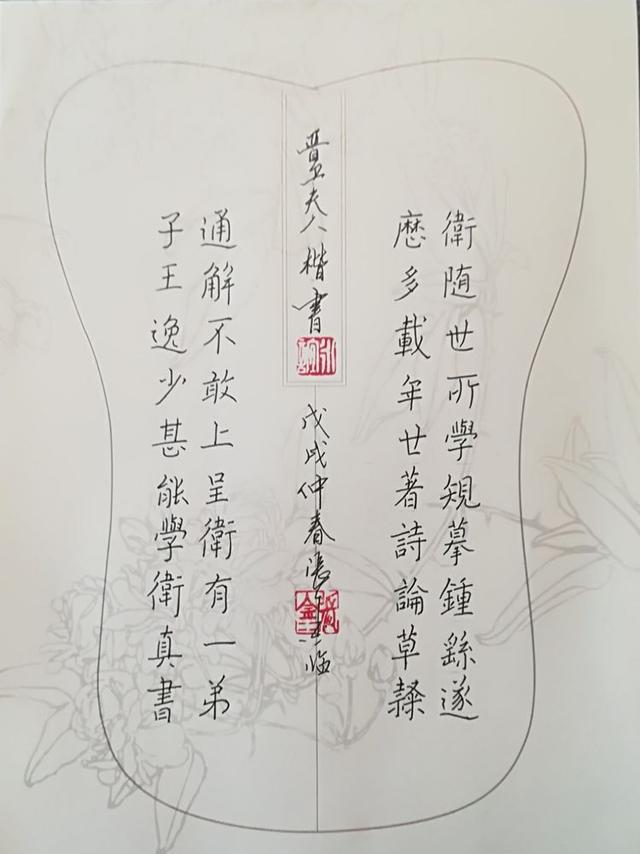 衛隨世所學規摹鍾繇遂
歷多載年廿著詩論草隸
晋卫夫人楷書
戊戌仲春張臨
通解不敢上呈衛有一弟
子王逸少甚能學衛真書